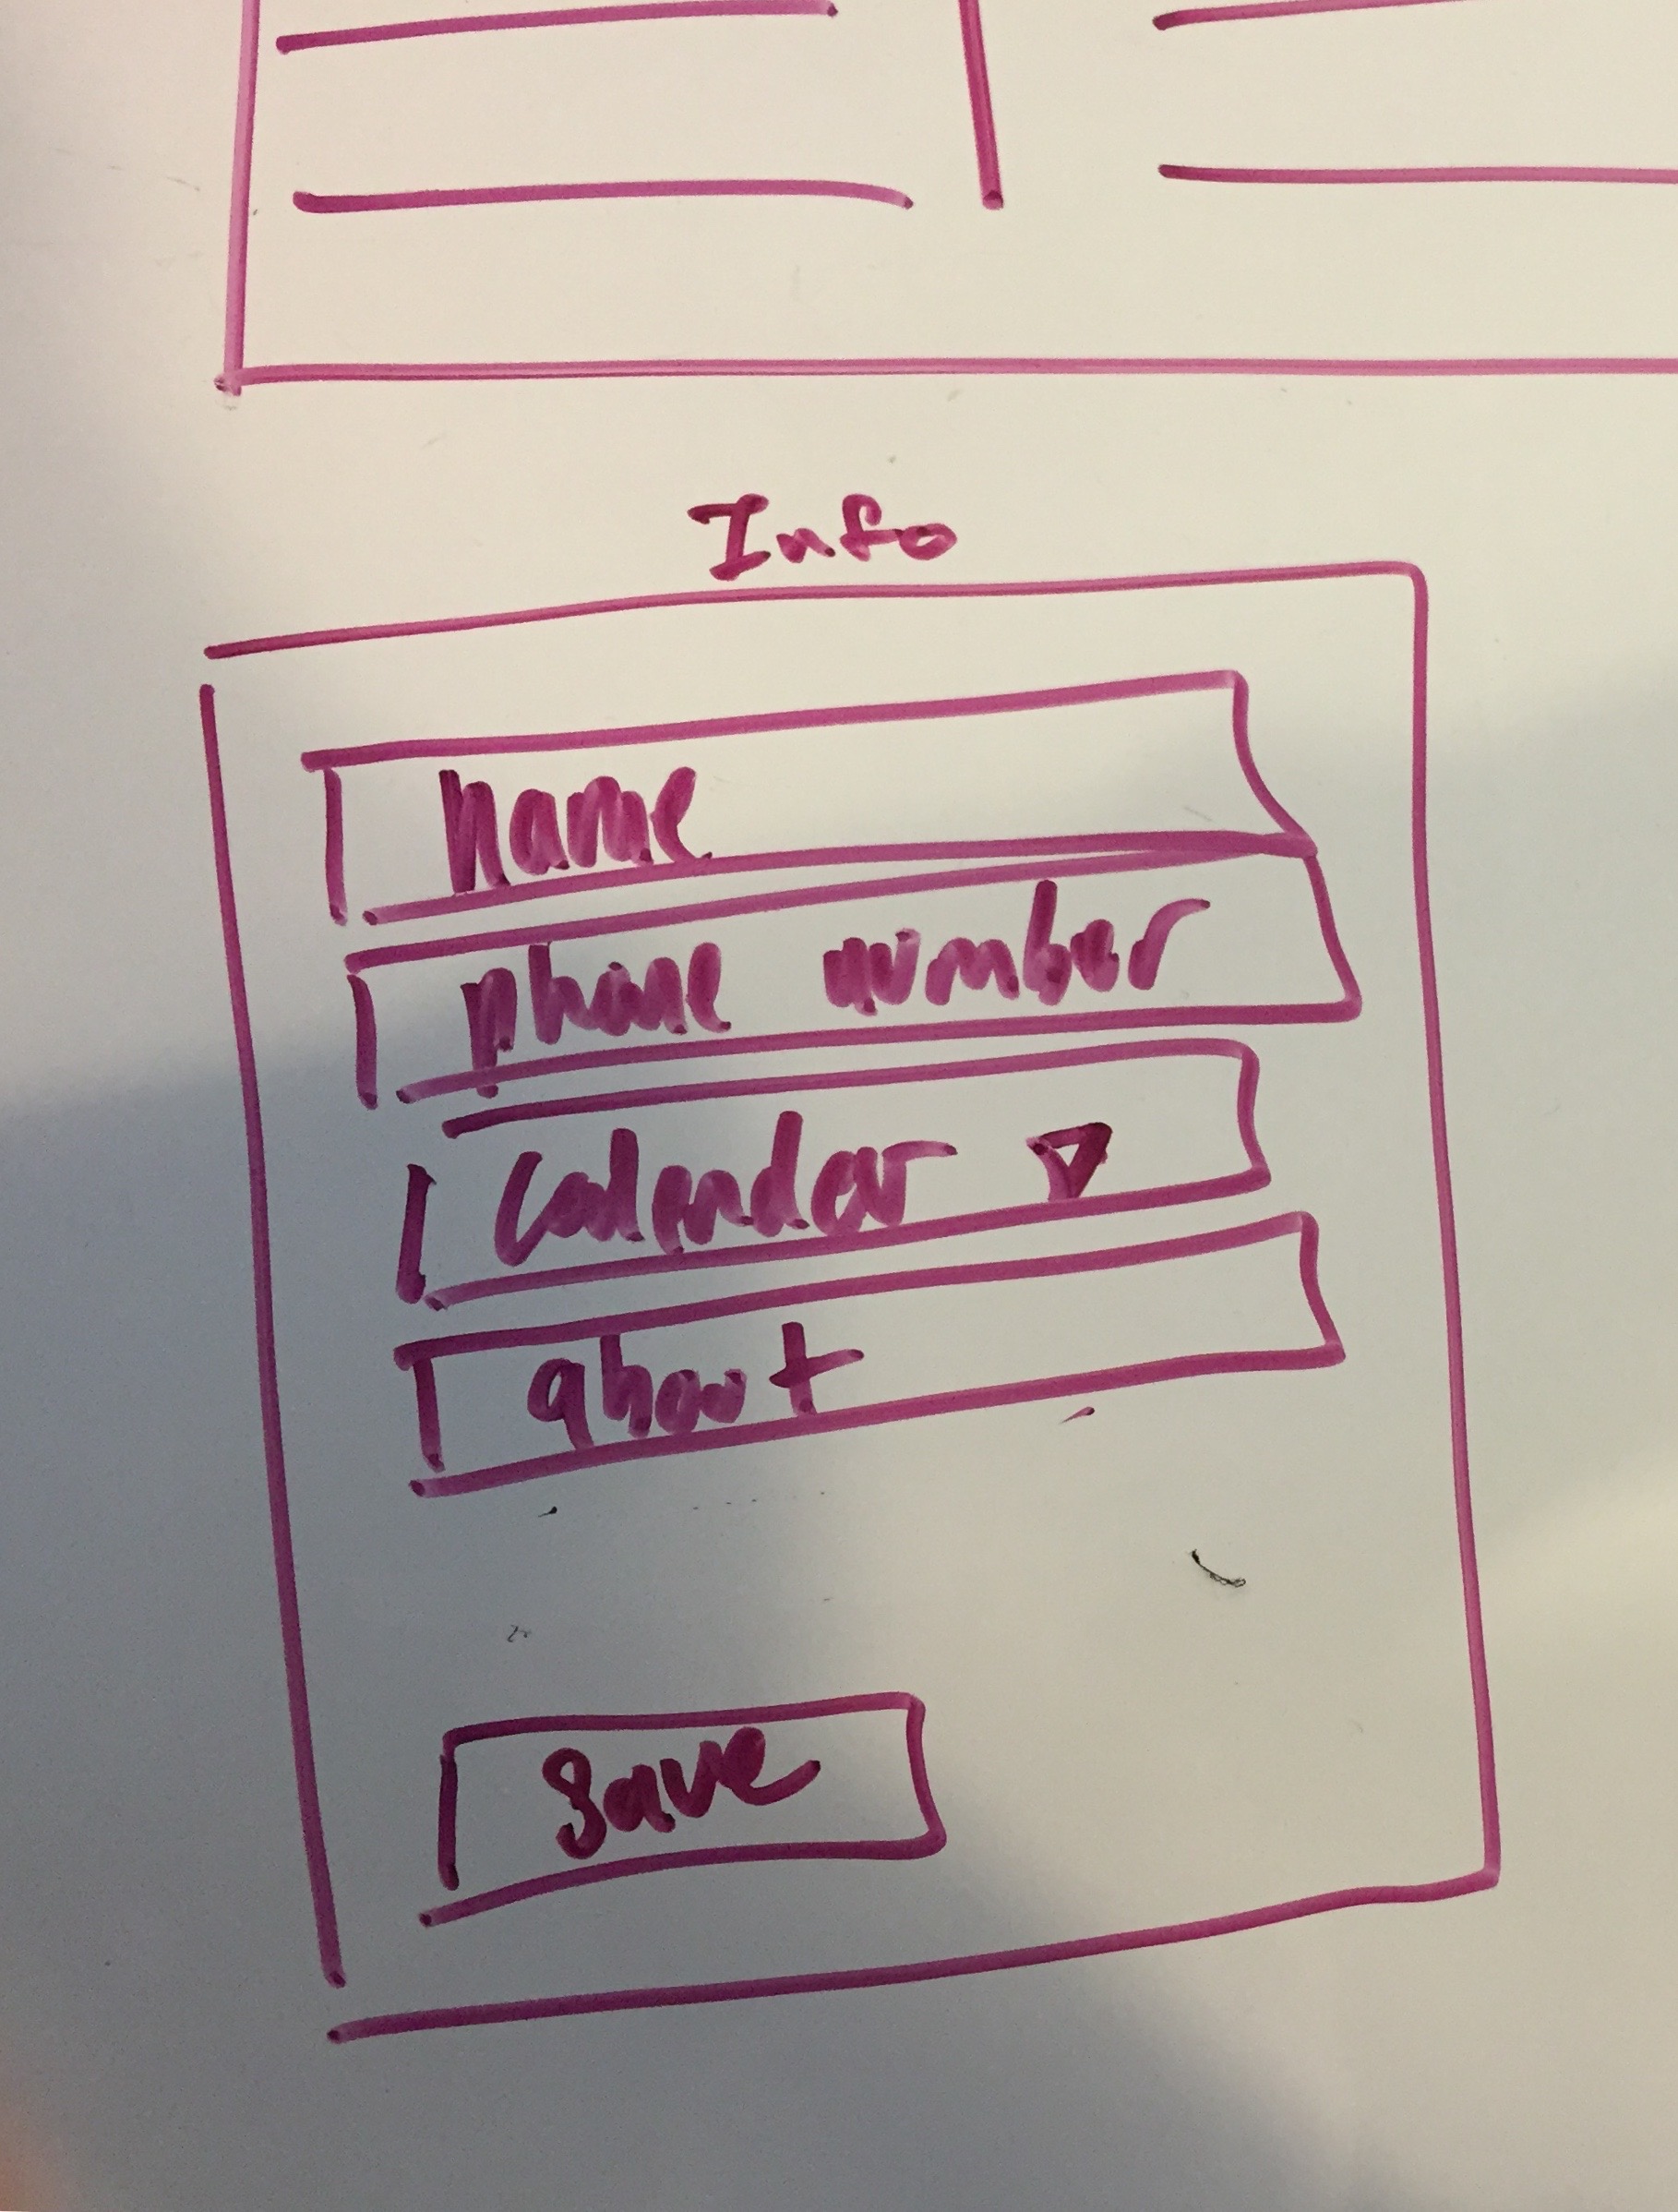 Info
name
phone number
calendar
about
Save